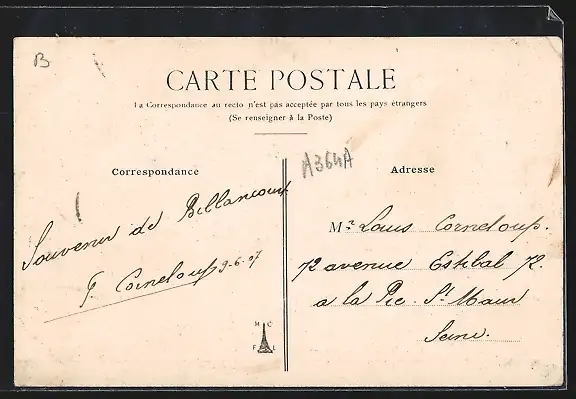 B
CARTE POSTALE
La Correspondance au recto n'est pas acceptée par tous les pays étrangers
(Se renseigner à la Poste)
A364A
Correspondance
Souvenir de Billancourt
F. Corneloup 9-6.07
M C
F L
Adresse
Mr Louis Corneloup.
72 avenue Estibal 72.
a la Pie. St Maur
Seine.